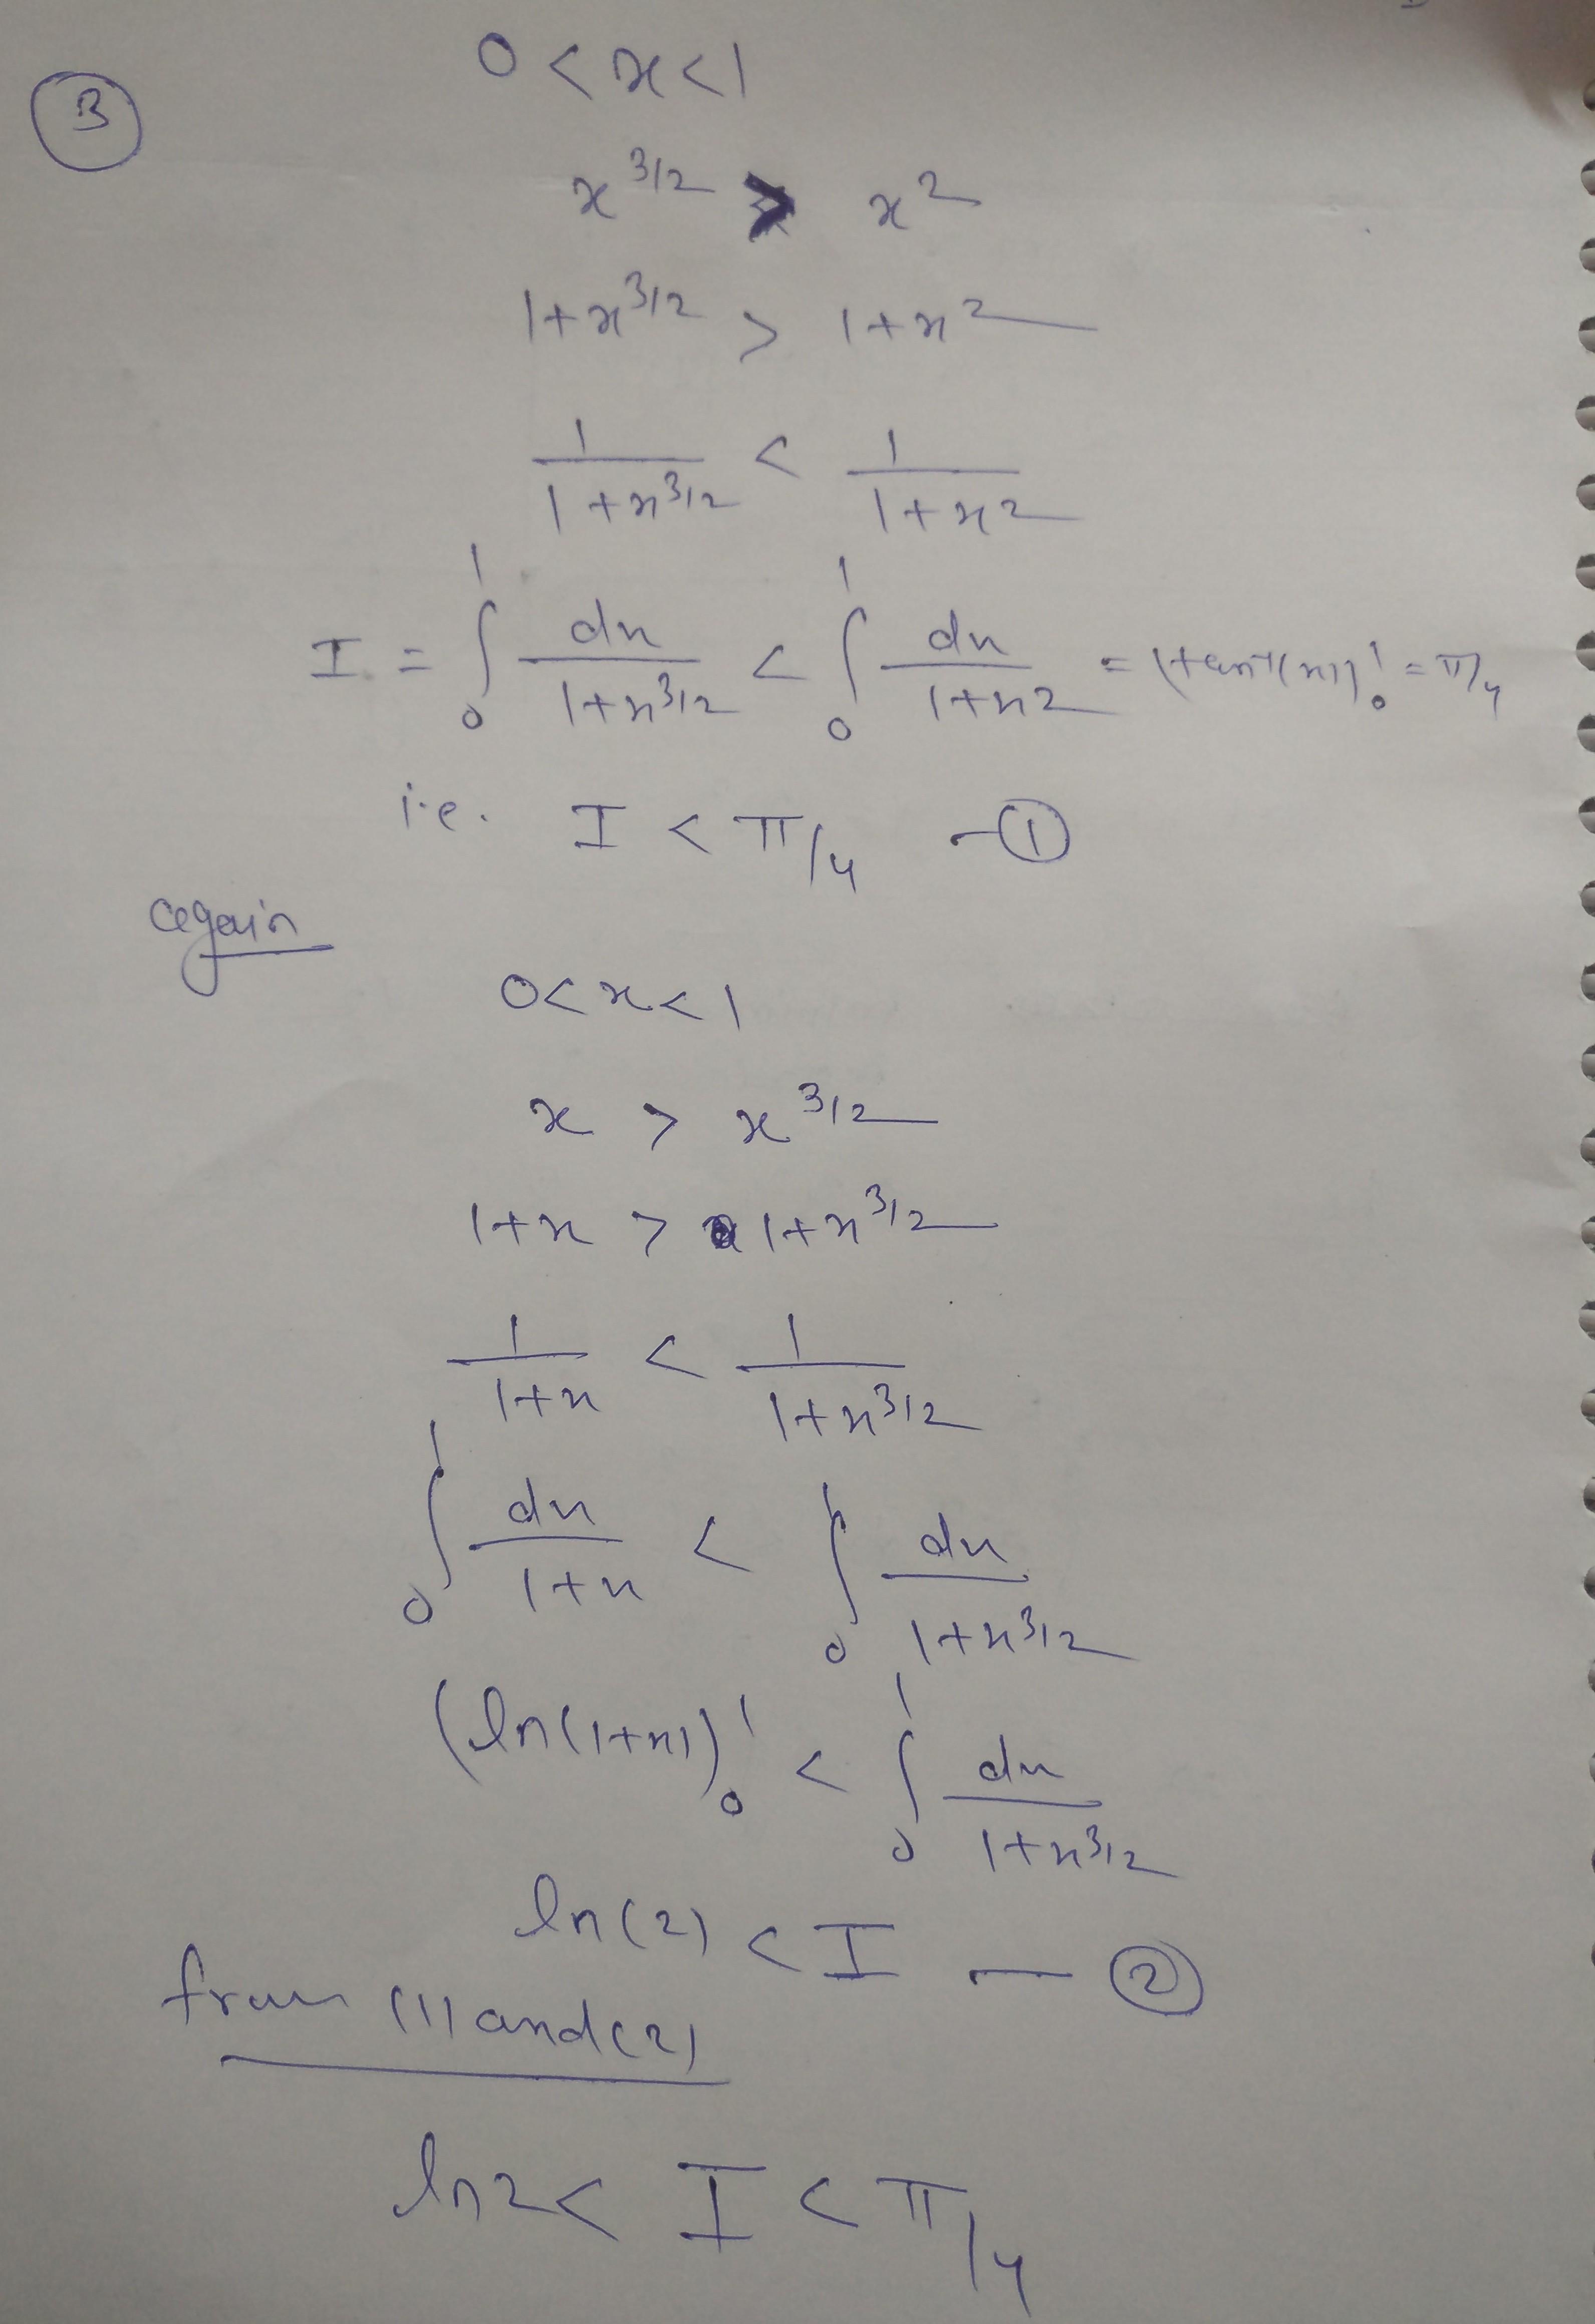 3
0 < x < 1
x^3/2 > x^2
1+x^3/2 > 1+x^2
1/(1+x^3/2) < 1/(1+x^2)
I = ∫_0^1 dx/(1+x^3/2) < ∫_0^1 dx/(1+x^2) = (tan^-1(x))_0^1 = π/4
i.e. I < π/4 - ①
again
0 < x < 1
x > x^3/2
1+x > 1+x^3/2
1/(1+x) < 1/(1+x^3/2)
∫_0^1 dx/(1+x) < ∫_0^1 dx/(1+x^3/2)
(ln(1+x))_0^1 < ∫_0^1 dx/(1+x^3/2)
ln(2) < I — ②
from (1) and (2)
ln2 < I < π/4